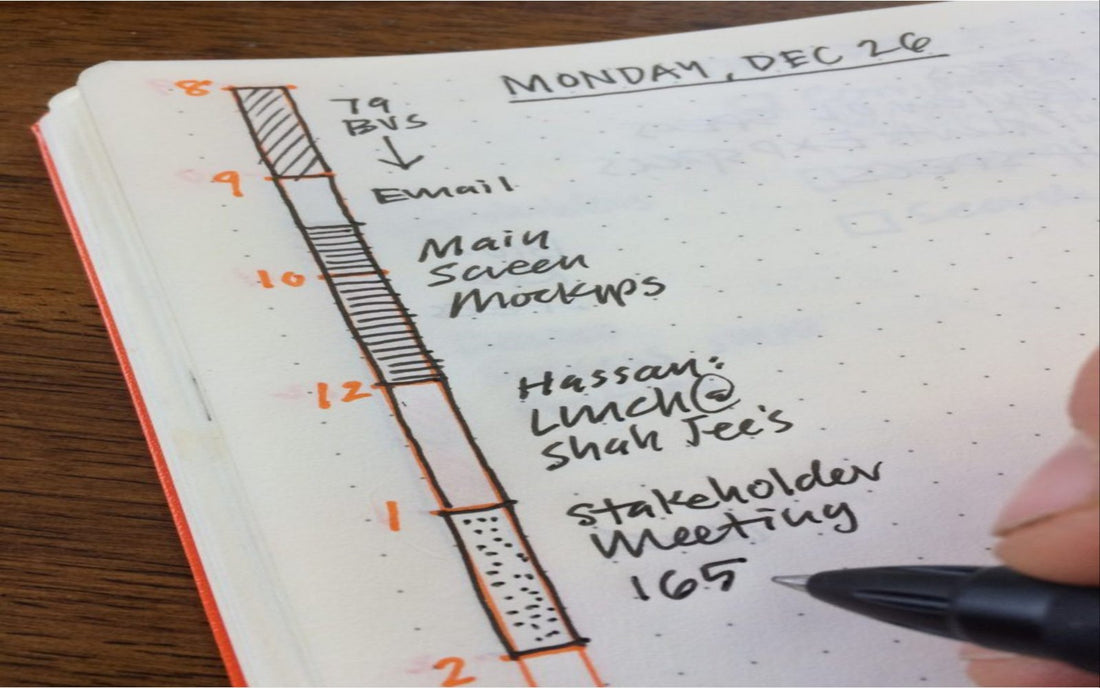 MONDAY, DEC 26
8
79
BVS
9
Email
Main
Screen
10
Mockups
12
Hassan:
Lunch @
Shah Jee's
1
Stakeholder
Meeting
165
2